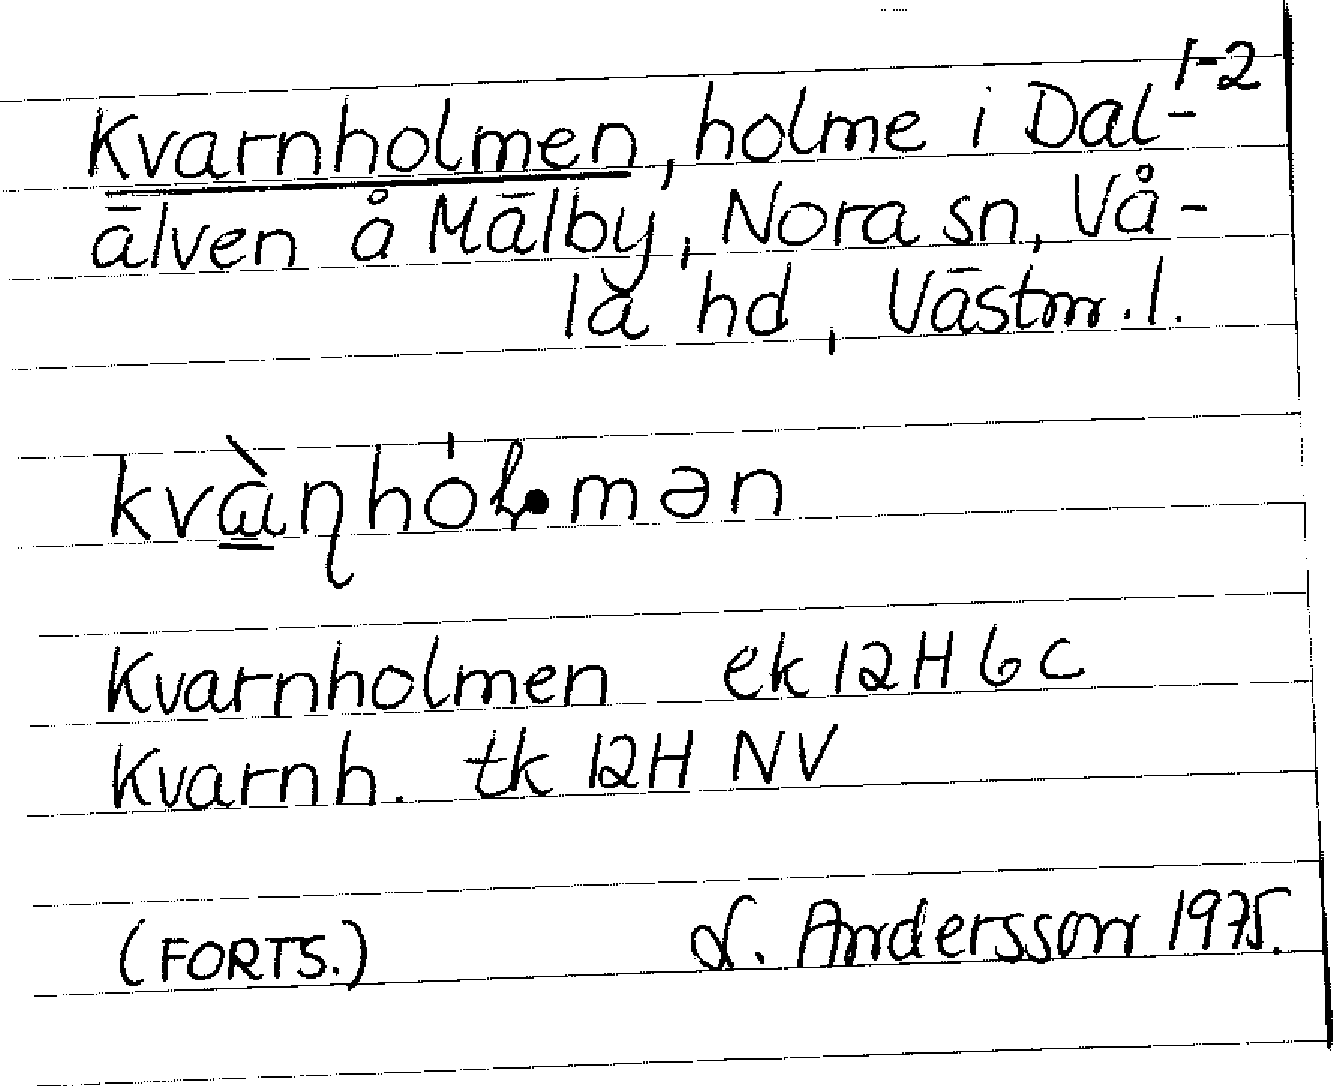 1-2
Kvarnholmen, holme i Dal-
älven å Mälby, Nora sn, Vå-
la hd, Västm. l.
Kvarnholmen ek 12H 6c
Kvarnh. tk 12H NV
(FORTS.) L. Andersson 1975.